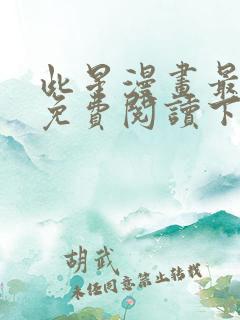 些星漫畫最
免費閱讀下
胡武
未经同意禁止转载